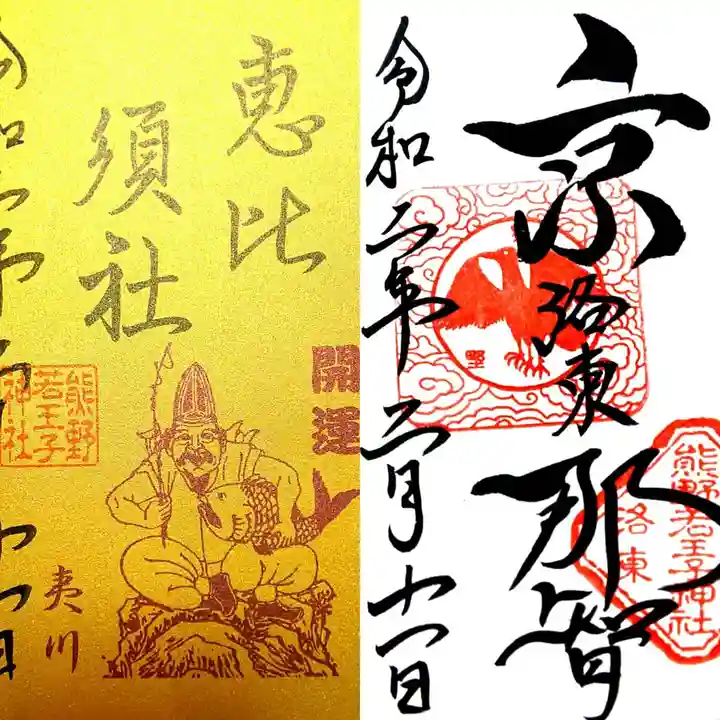 恵比
須社
開運
熊野
若王子
神社
夷川
令和二年二月十一日
京
洛東
那智
令和二年二月十一日
熊野若王子神社
洛東